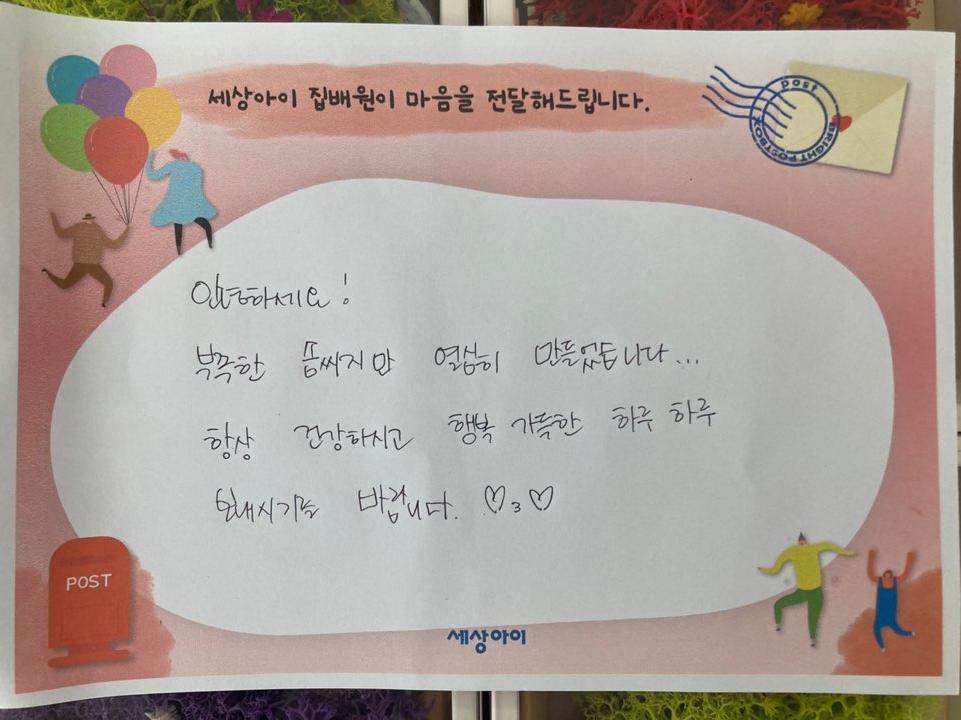 세상아이 집배원이 마음을 전달해드립니다.
post
BRIGHT POSTBOX
안녕하세요!
부족한 솜씨지만 열심히 만들었습니다...
항상 건강하시고 행복 가득한 하루 하루
보내시기를 바랍니다. ♡3♡
POST
세상아이